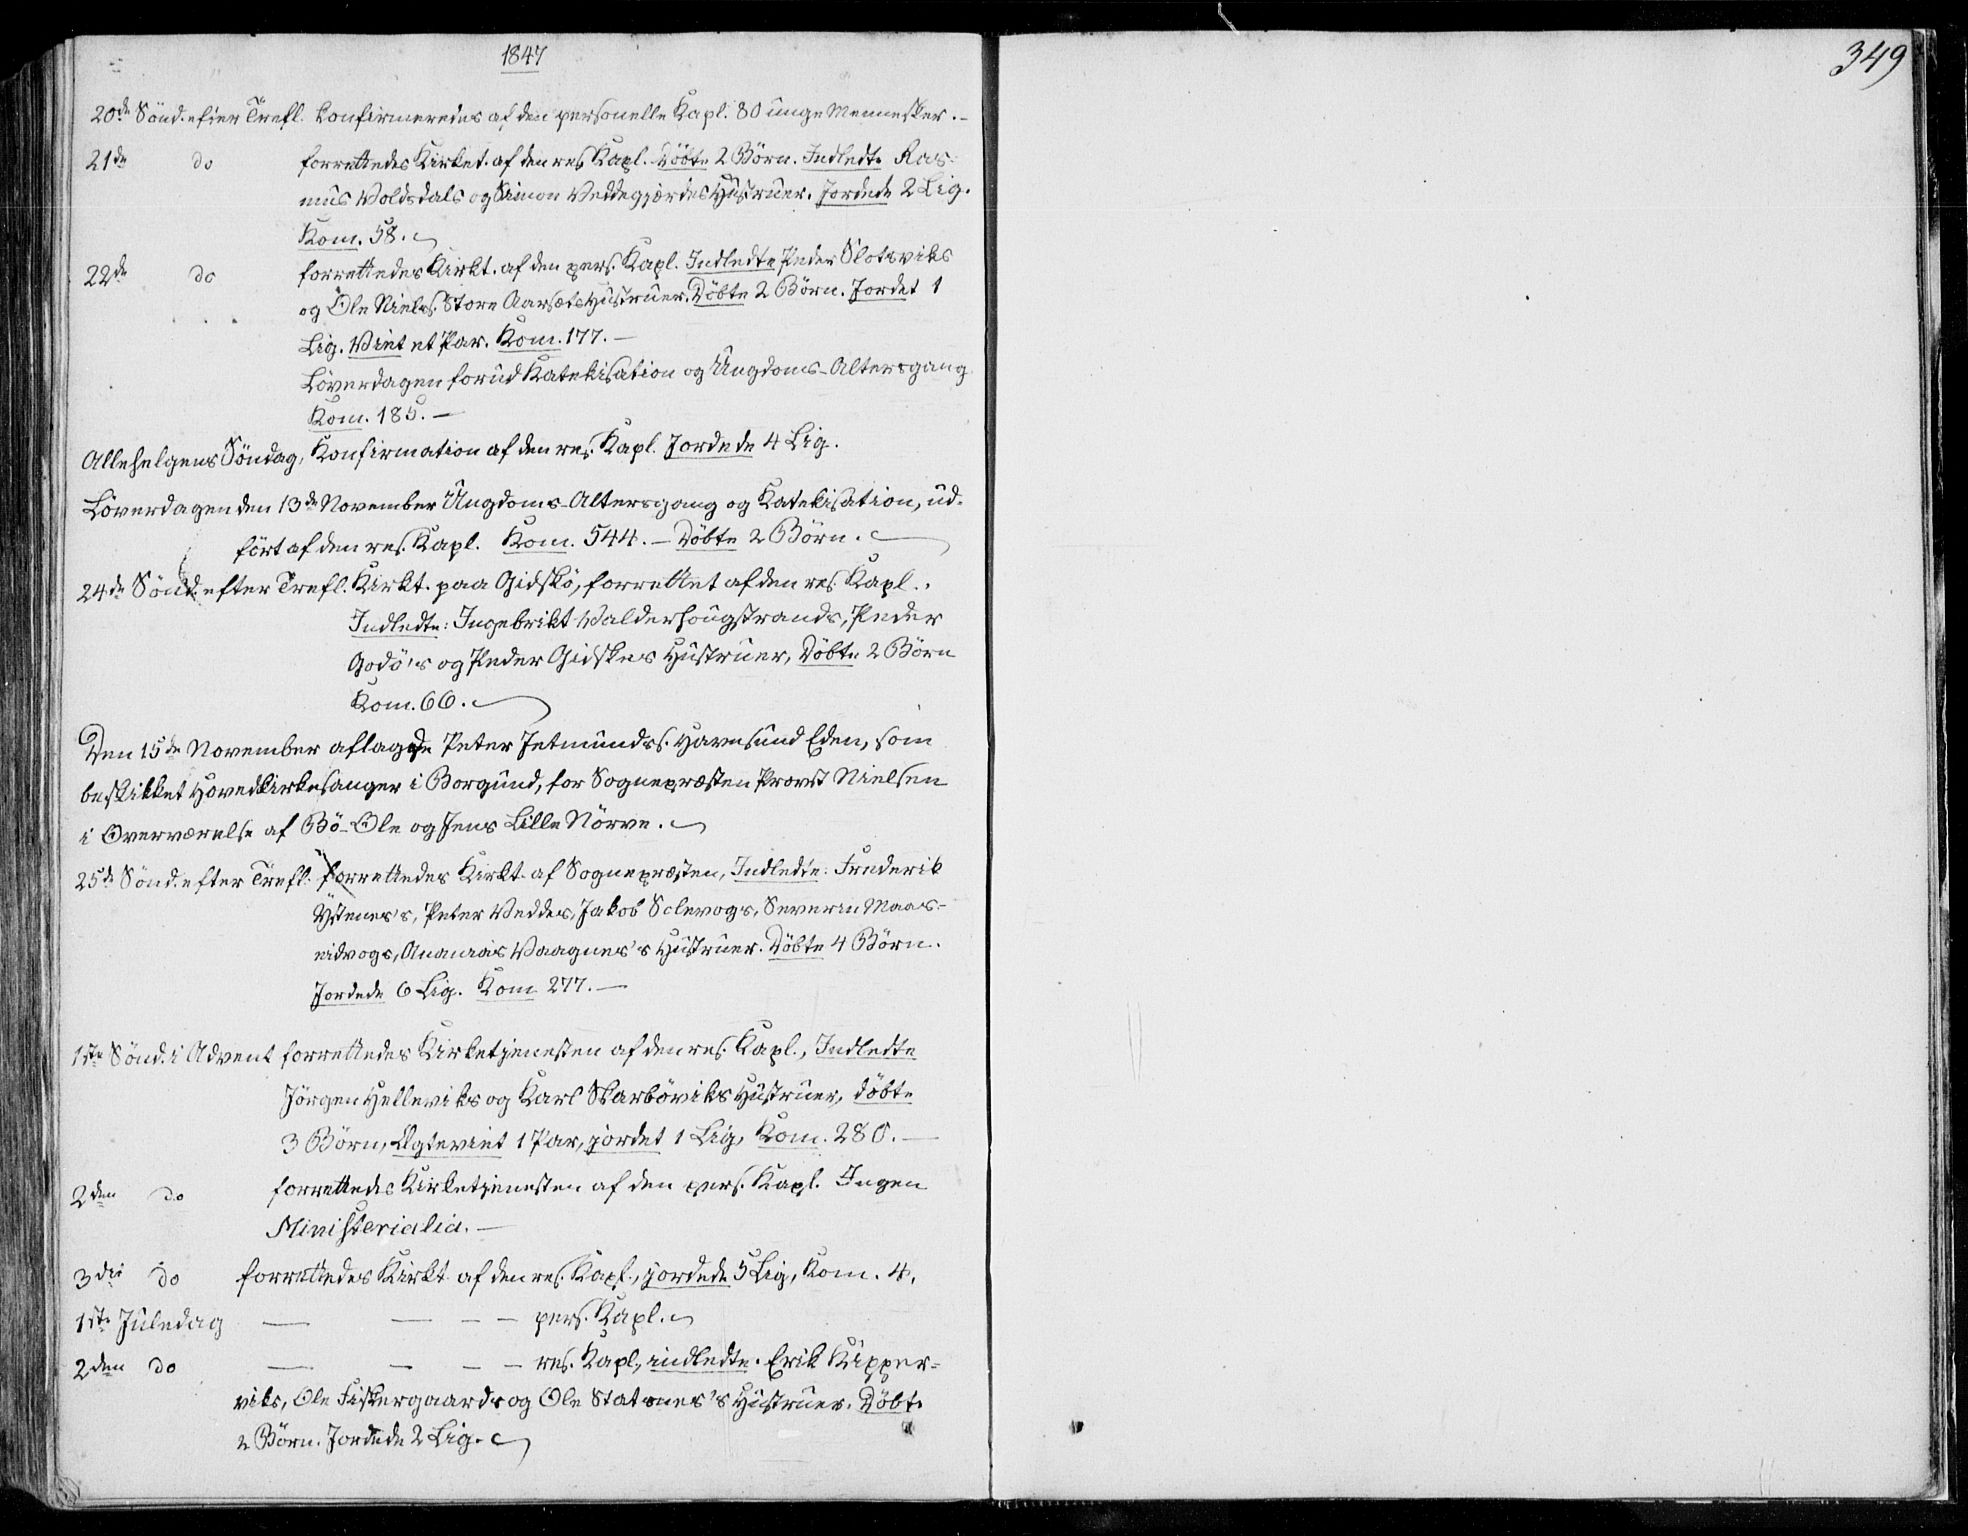 1847
349
20de Sönd. efter Trefl. Konfirmeredes af den personelle Kapl. 80 unge Mennesker.-
21de do forrettedes Kirket. af den res. Kapl. Döbte 2 Börn. Indledte Ras-
mus Voldsdals og Simon Veddegjerdes Hustruer. Jordede 2 Lig.
Kom. 58.
22de do forrettedes Kirkt. af den pers. Kapl. Indledte Peder Slotsviks
og Ole Niels. Store Aarsæts Hustruer. Döbte 2 Börn. Jordet 1
Lig. Viet et Par. Kom. 177.-
Löverdagen forud Katekisation og Ungdoms-Altergang
Kom. 185.-
Allehelgens Söndag, Konfirmation af den res. Kapl. Jordede 4 Lig.
Löverdagen den 13de November Ungdoms-Altergang og Katekisation, ud-
fört af den res. Kapl. Kom. 544.- Döbte 2 Börn.
24de Sönd. efter Trefl. Kirkt. paa Gidskö, forrettet af den res. Kapl.,
Indledte: Ingebrikt Valderhougstrands, Peder
Godö's og Peder Gidskes Hustruer, Döbte 2 Börn
Kom. 66.
Den 15de November aflagde Peter Jetmunds. Havnsund Eden, som
beskikket Hovedkirkesanger i Borgund, for Sognepræsten Provst Nielsen
i Overværelse af Bö-Ole og Jens Lille Nörve.
25de Sönd. efter Trefl. forrettedes Kirkt. af Sognepræsten, Indledte: Frederik
Ystenes's, Peter Veddes, Jakob Solevogs, Severin Maas-
eidvogs, Ananias Vaagnes's Hustruer. Döbte 4 Börn.
Jordede 6 Lig. Kom 277.-
1ste Sönd. i Advent forrettedes Kirketjenesten af den res. Kapl., Indledte
Jörgen Helleviks og Karl Skarböviks Hustruer, döbte
3 Börn, Ægteviet 1 Par, jordet 1 Lig, Kom. 280.-
2den do forrettedes Kirketjenesten af den pers. Kapl. Ingen
Ministerialia.-
3die do forrettedes Kirkt. af den res. Kapl., jordede 5 Lig, Kom. 4.
1ste Juledag — — — — pers. Kapl.
2den do — — — — res. Kapl., indledte. Erik Kipper-
viks, Ole Fiskergaards og Ole Statsnes's Hustruer. Döbte
2 Börn. Jordede 2 Lig.